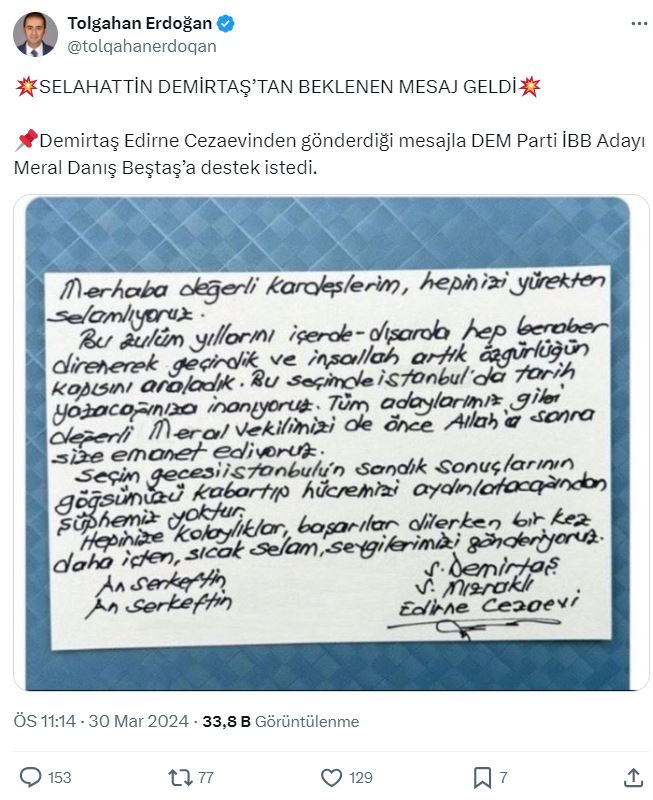 Tolgahan Erdoğan
@tolqahanerdoqan
💥SELAHATTİN DEMİRTAŞ’TAN BEKLENEN MESAJ GELDİ💥
📌Demirtaş Edirne Cezaevinden gönderdiği mesajla DEM Parti İBB Adayı
Meral Danış Beştaş’a destek istedi.
Merhaba değerli kardeşlerim, hepinizi yürekten
selamlıyoruz.
Bu zulüm yıllarını içerde-dışarda hep beraber
direnerek geçirdik ve inşallah artık özgürlüğün
kapısını araladık. Bu seçimde istanbul'da tarih
yazacağınıza inanıyoruz. Tüm adaylarımız gibi
değerli Meral Vekilimizi de önce Allah'a sonra
size emanet ediyoruz.
Seçim gecesi istanbul'un sandık sonuçlarının
göğsümüzü kabartıp hücremizi aydınlatacağından
şüphemiz yoktur.
Hepinize kolaylıklar, başarılar dilerken bir kez
daha içten, sıcak selam, sevgilerimizi gönderiyoruz.
An serkeftin
An serkeftin
S. Demirtaş
S. Mızraklı
Edirne Cezaevi
ÖS 11:14 · 30 Mar 2024 · 33,8 B Görüntülenme
153 77 129 7